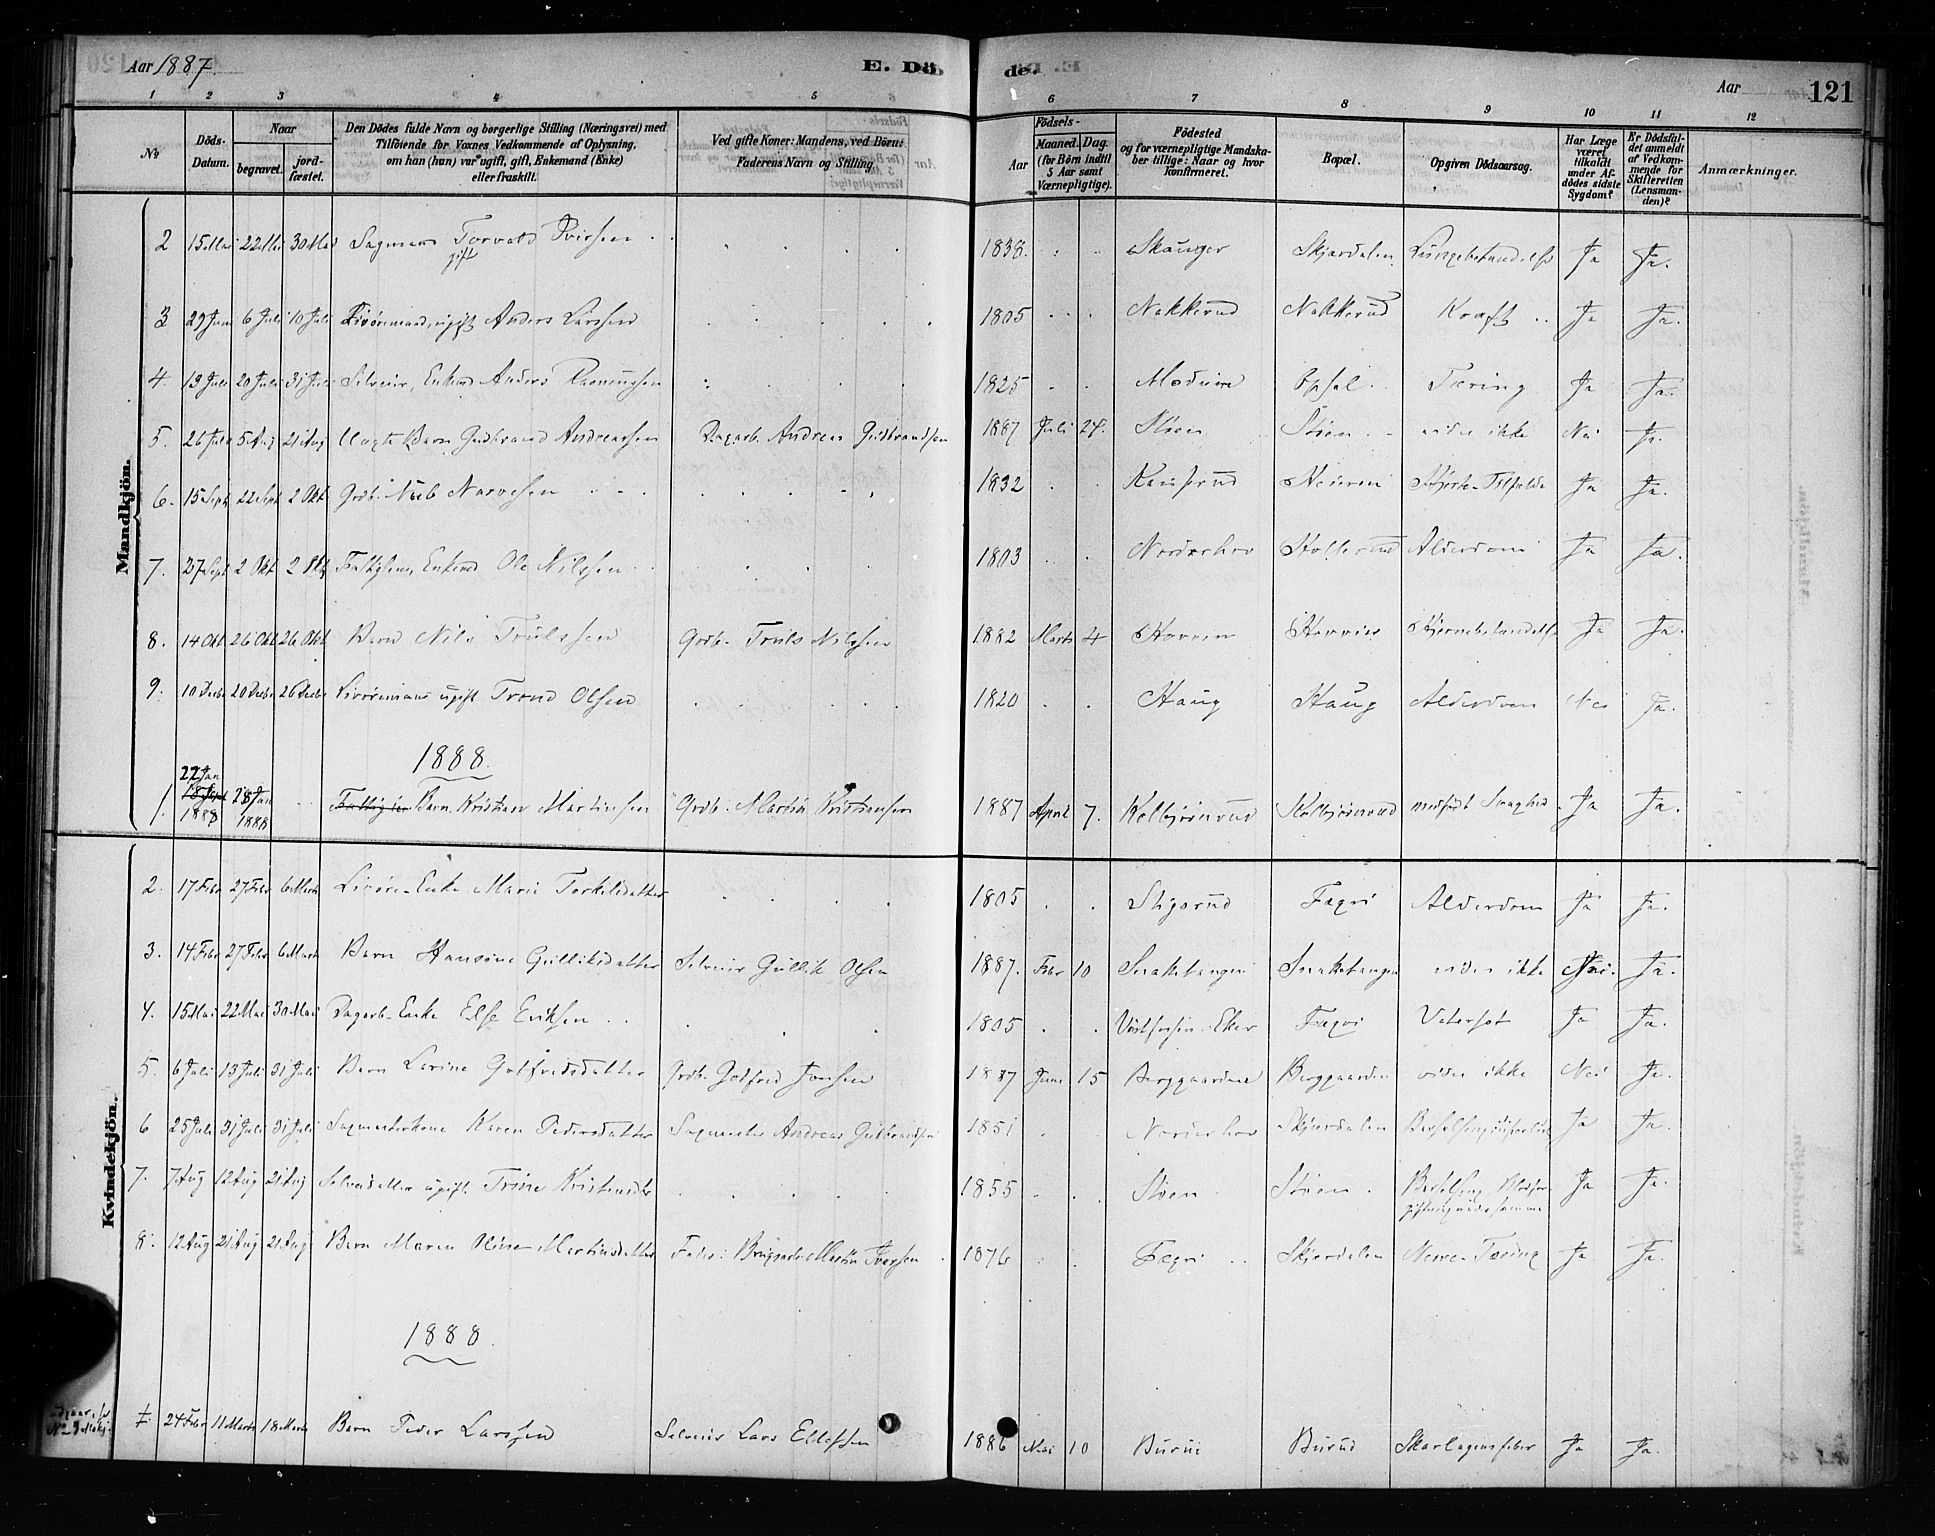 Aar 1887.
E. Dö.
de.
Aar
121
1 2 3 4 5 6 7 8 9 10 11 12
No
Döds-Datum.
Naar
begravet.
jord-fæstet.
Den Dödes fulde Navn og borgerlige Stilling (Næringsvei) med
Tilföiende for Voxnes Vedkommende af Oplysning,
om han (hun) var ugift, gift, Enkemand (Enke)
eller fraskilt.
Ved gifte Koner: Mandens, ved Börn:
Faderens Navn og Stilling.
Födsels-
Aar
Maaned. Dag.
(for Börn indtil
5 Aar samt
Værnepligtige).
Födested
og for værnepligtige Mandska-
ber tillige: Naar og hvor
konfirmeret.
Bopæl.
Opgiven Dödsaarsag.
Har Læge
været
tilkaldt
under Af-
dödes sidste
Sygdom?
Er Dödsfal-
det anmeldt
af Vedkom-
mende for
Skifteretten
(Lensman-
den)?
Anmærkninger.
Mandkjön.
2 15 Mai 22 Mai 30 Mai Sagmand Torvald Iversen 1838. Skauger Skjærdalen Lungebetændelse Ja Ja.
gift
3 29 Juni 6 Juli 10 Juli Livöremand, ugift Anders Larssen 1805 Nakkerud Nakkerud Kræft Ja Ja.
4 13 Juli 20 Juli 31 Juli Selveier, Enkem Anders Rasmussen 1825 Modum Opsal Tæring Ja Ja.
5. 26 Juli 5 Aug 21 Aug Uægte Barn Gudbrand Andreassen Dagarb. Andreas Gudbrandsen 1887 Juli 24. Stöen Stöen vides ikke Nei Ja.
6. 15 Sept 22 Sept 2 Okt Grdb. Narvesen 1832 Hjerte-Tilfælde Ja Ja.
7. 27 Sept 2 Okt 2 Okt Fattiglem, Enkem Ole Nilssen 1803 Norderhov Hollerud Alderdom Ja Ja.
8. 14 Okt 26 Okt 26 Okt Barn Nils Trulssen Grdb. Truls Nilssen 1882 Marts 4 Hovrin Hjernebetændelse Ja Ja.
9. 10 Decbr 20 Decbr 26 Decbr Livöremand ugift Trond Olsen 1820 Haug Haug Alderdom Nei Ja.
1888.
22 Jan
1. 1888 28 Jan 1888 Barn Kristian Martinsen Grdb. Martin Kristiansen 1887 April 7. Kolbjörnrud Kolbjörnrud medfödt Svaghed Ja Ja.
Kvindekjön.
2. 17 Febr 27 Febr 6 Marts Livöre-Enke Marie Torkildsdatter 1805 Stigsrud Fægri Alderdom Ja Ja.
3. 14 Febr 27 Febr 6 Marts Barn Hansine Gulliksdatter Selveier Gullik Olsen 1887. Febr 10 Snaketangen Snaketangen vides ikke Nei. Ja.
4. 15 Mai 22 Mai 30 Mai Dagarb-Enke Else Eriksen 1805 Vestfossen Eker Fægri Vatersot Ja Ja.
5. 6 Juli 13 Juli 31 Juli Barn Larine Gotfredsdatter Grdb. Gotfred Jonsen 1887 Juni 15 Berggaarden Berggaarden vides ikke Nei Ja.
6 25 Juli 31 Juli 31 Juli Sagmesterkone Karen Pedersdatter Sagmester Andreas Gulbrandsen 1851 Norderhov Skjærdalen Ja Ja.
7. 7 Aug 12 Aug 21 Aug ugift Trine Kristensdtr 1855 Stöen Stöen Ja Ja.
8. 12 Aug 21 Aug 21 Aug Barn Maren Oline Martinsdatter Fader: Martin Iversen 1876 Fægri Skjærdalen Tæring Ja Ja.
1888
24 Febr 11 Marts 18 Marts Barn Peder Larssen Selveier Lars Ellefsen 1886 Mai 10 Burud Burud Skarlagensfeber Ja Ja.